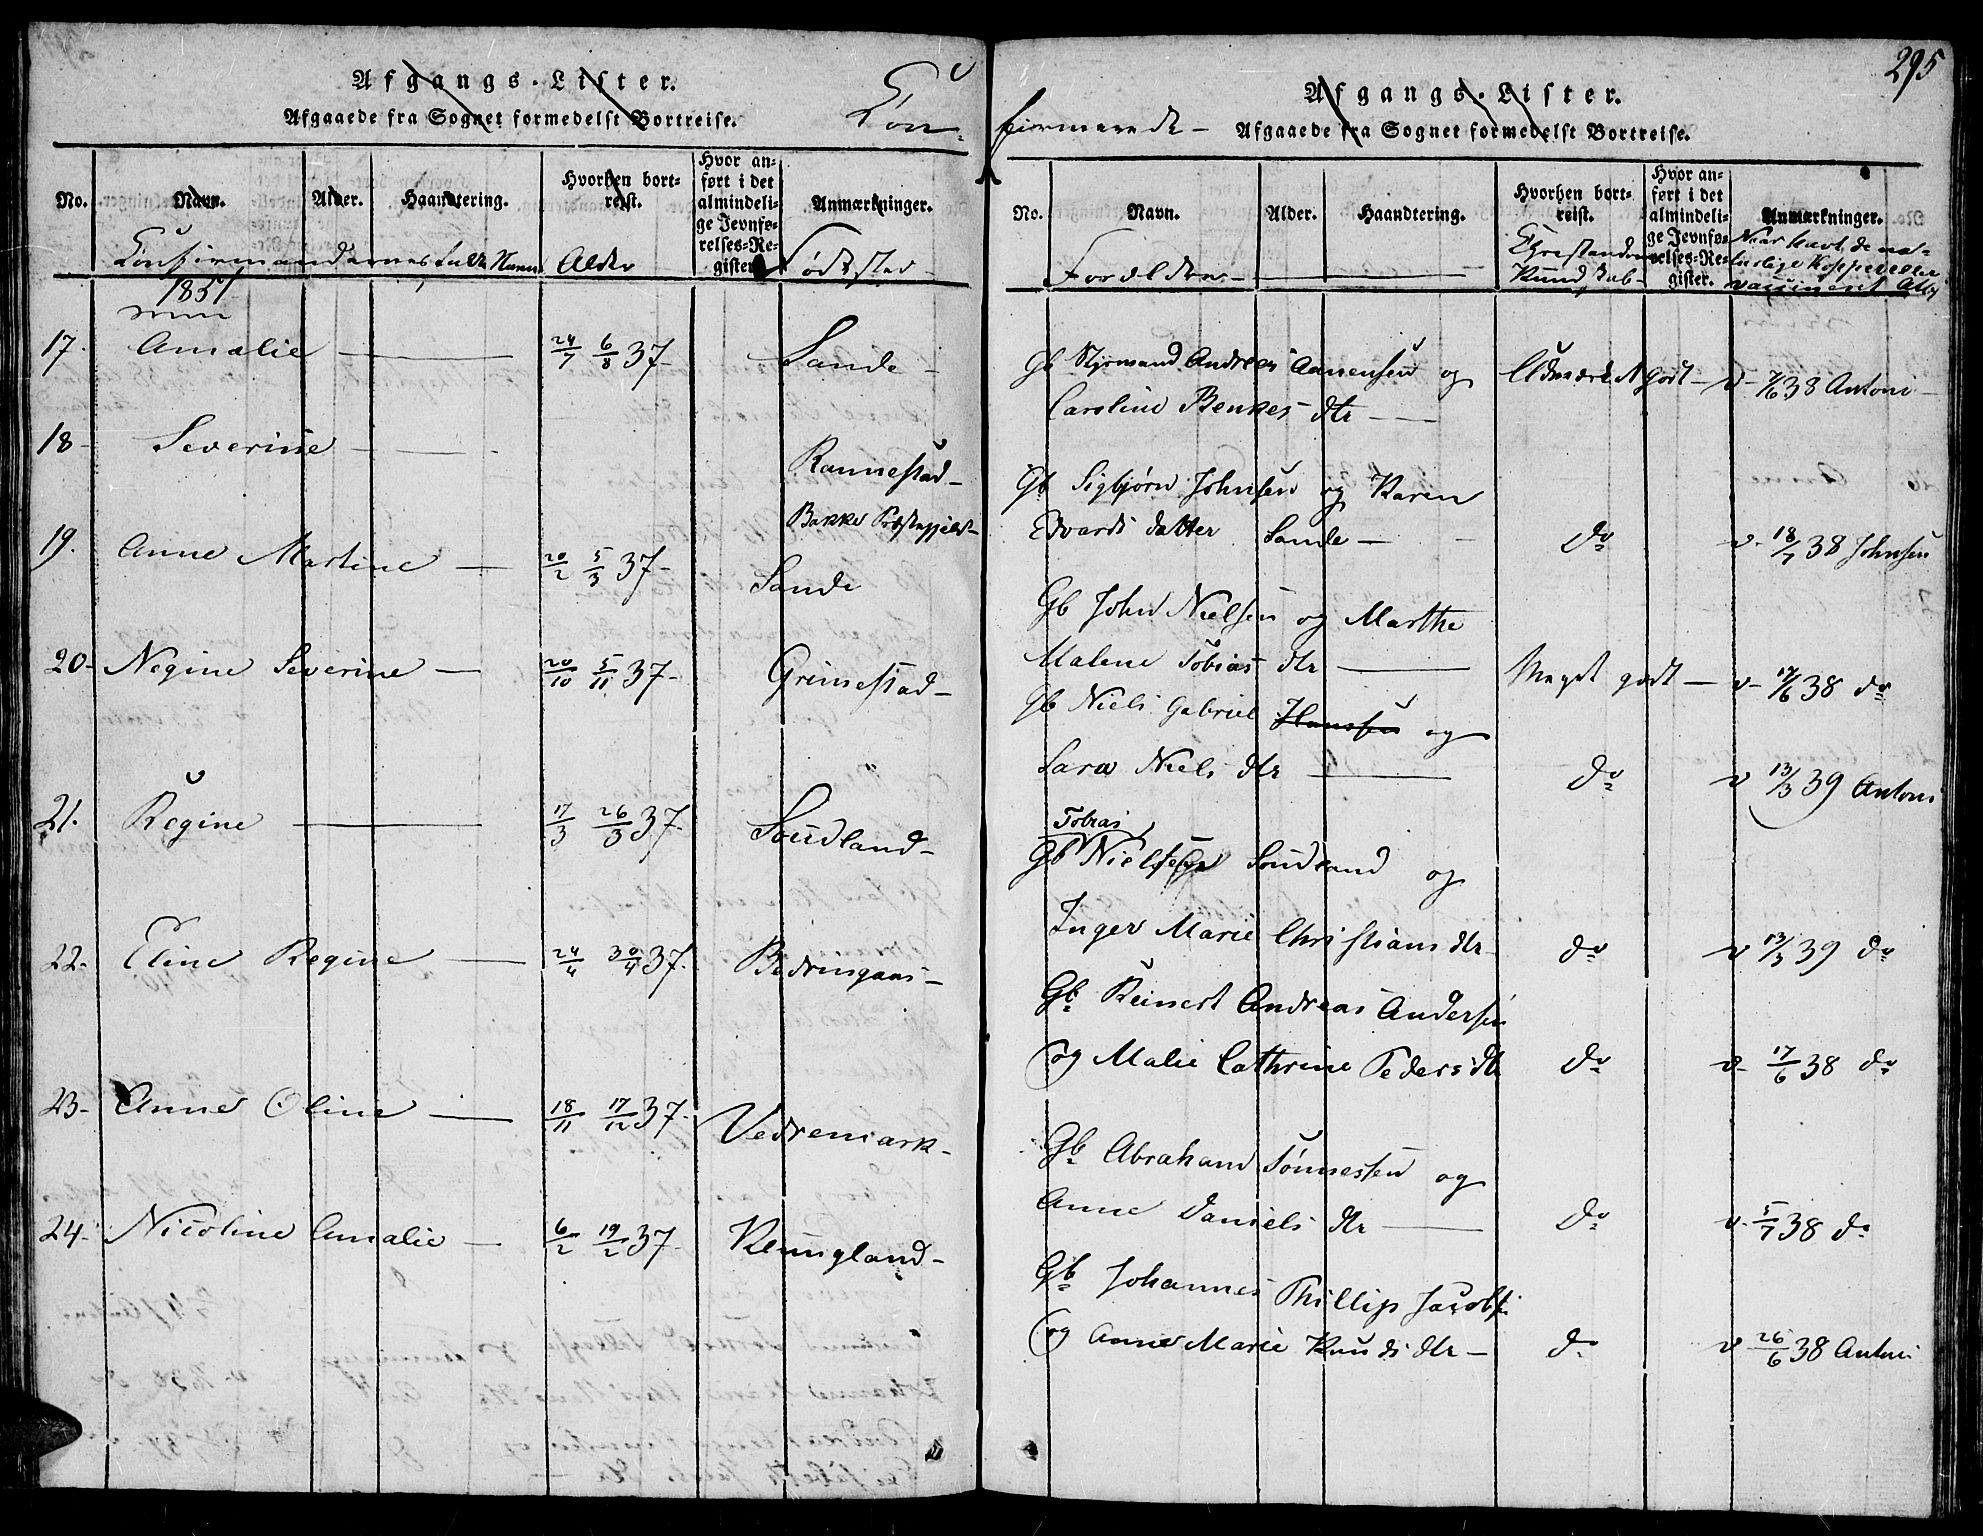 Afgangs-Lister.
Afgaaede fra Sognet formedelst Bortreise.
Con-
No.
Navn.
Alder.
Haandtering.
Hvorhen bortreist.
Hvor anført i det almindelige Jevnførelses-Register.
Anmærkninger.
Confirmandernes fulde Navn
Alder
Fødested
17. Amalie 24/7 6/8 37- Sande-
18- Severine Rannestad-
Bakke Præstegjeld-
19. Anne Martine 20/2 5/3 37- Sande
20- Negine Severine 20/10 5/11 37- Grimestad-
21. Regine 17/3 26/3 37. Loudland-
22- Eline Regine 24/4 30/4 37. Bedringaas-
23- Anne Oline 18/11 17/12 37- Vedremark-
24- Nicoline Amalie 6/2 19/2 37- Kleungland-
295
Afgangs-Lister.
firmerede-
Afgaaede fra Sognet formedelst Bortreise.
No.
Navn.
Alder.
Haandtering.
Hvorhen bortreist.
Hvor anført i det almindelige Jevnførelses-Register.
Anmærkninger.
Forældrene-
Christendoms
Kundskab-
Naar havt de na-
turlige Kopper eller
vaccineret
Gb Styrmand Andreas Aanensen og Udmærket godt- v- 7/6 38 Antoni
Caroline Benkes dtr
Gb Sigbjørn Johnsen og Karen
Edvards datter Sande- do v- 18/7 38 Johnsen
Gb John Nielsen og Marthe
Malene Tobias dtr Meget godt- v- 17/6 38 do
Gb Niels Gabriel Hansen og
Sara Niels dtr do v 13/3 39 Antoni
Tobias
Gb Nielsen Loudland og
Inger Marie Christians dtr- do v 13/3 39 do
Gb. Reinert Andreas Andersen
og Malie Cathrine Peders dtr do v- 17/6 38 do
Gb Abraham Tønnessen og
Anne Daniels dtr do v- 5/7 38 do
Gb Johannes Phillip Jacobs.
og Anne Marie Knuds dtr- do v 26/6 38 Antoni